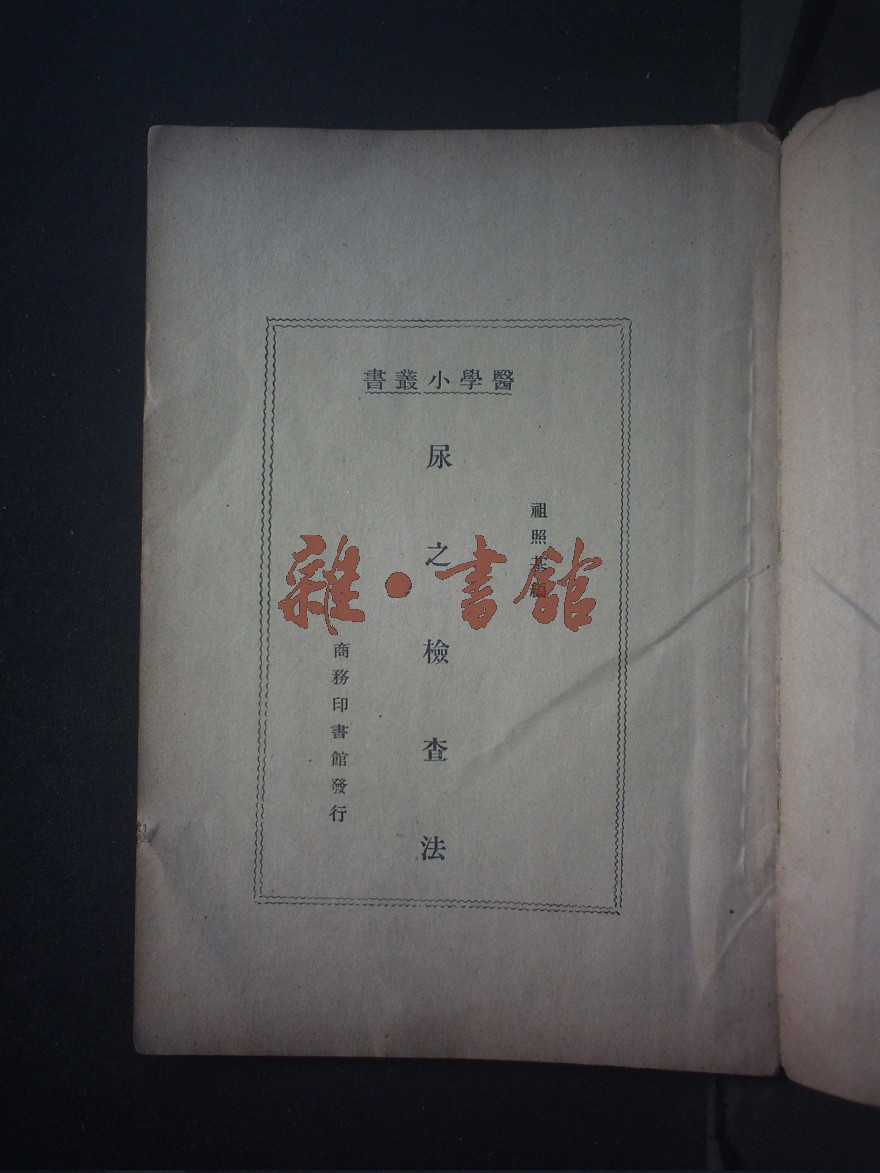 醫學小叢書
祖照基編
尿之檢查法
商務印書館發行
雜•書館